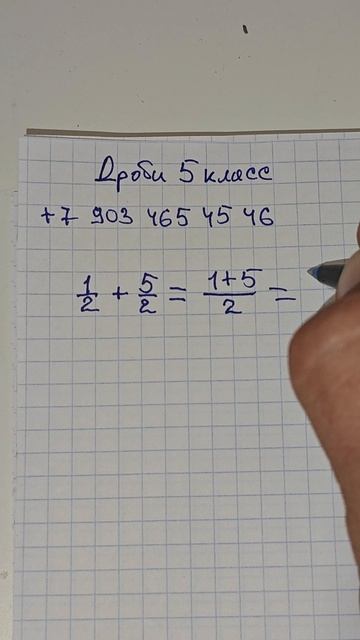 Дроби 5 класс
+7 903 465 45 46
1/2 + 5/2 = (1+5)/2 =